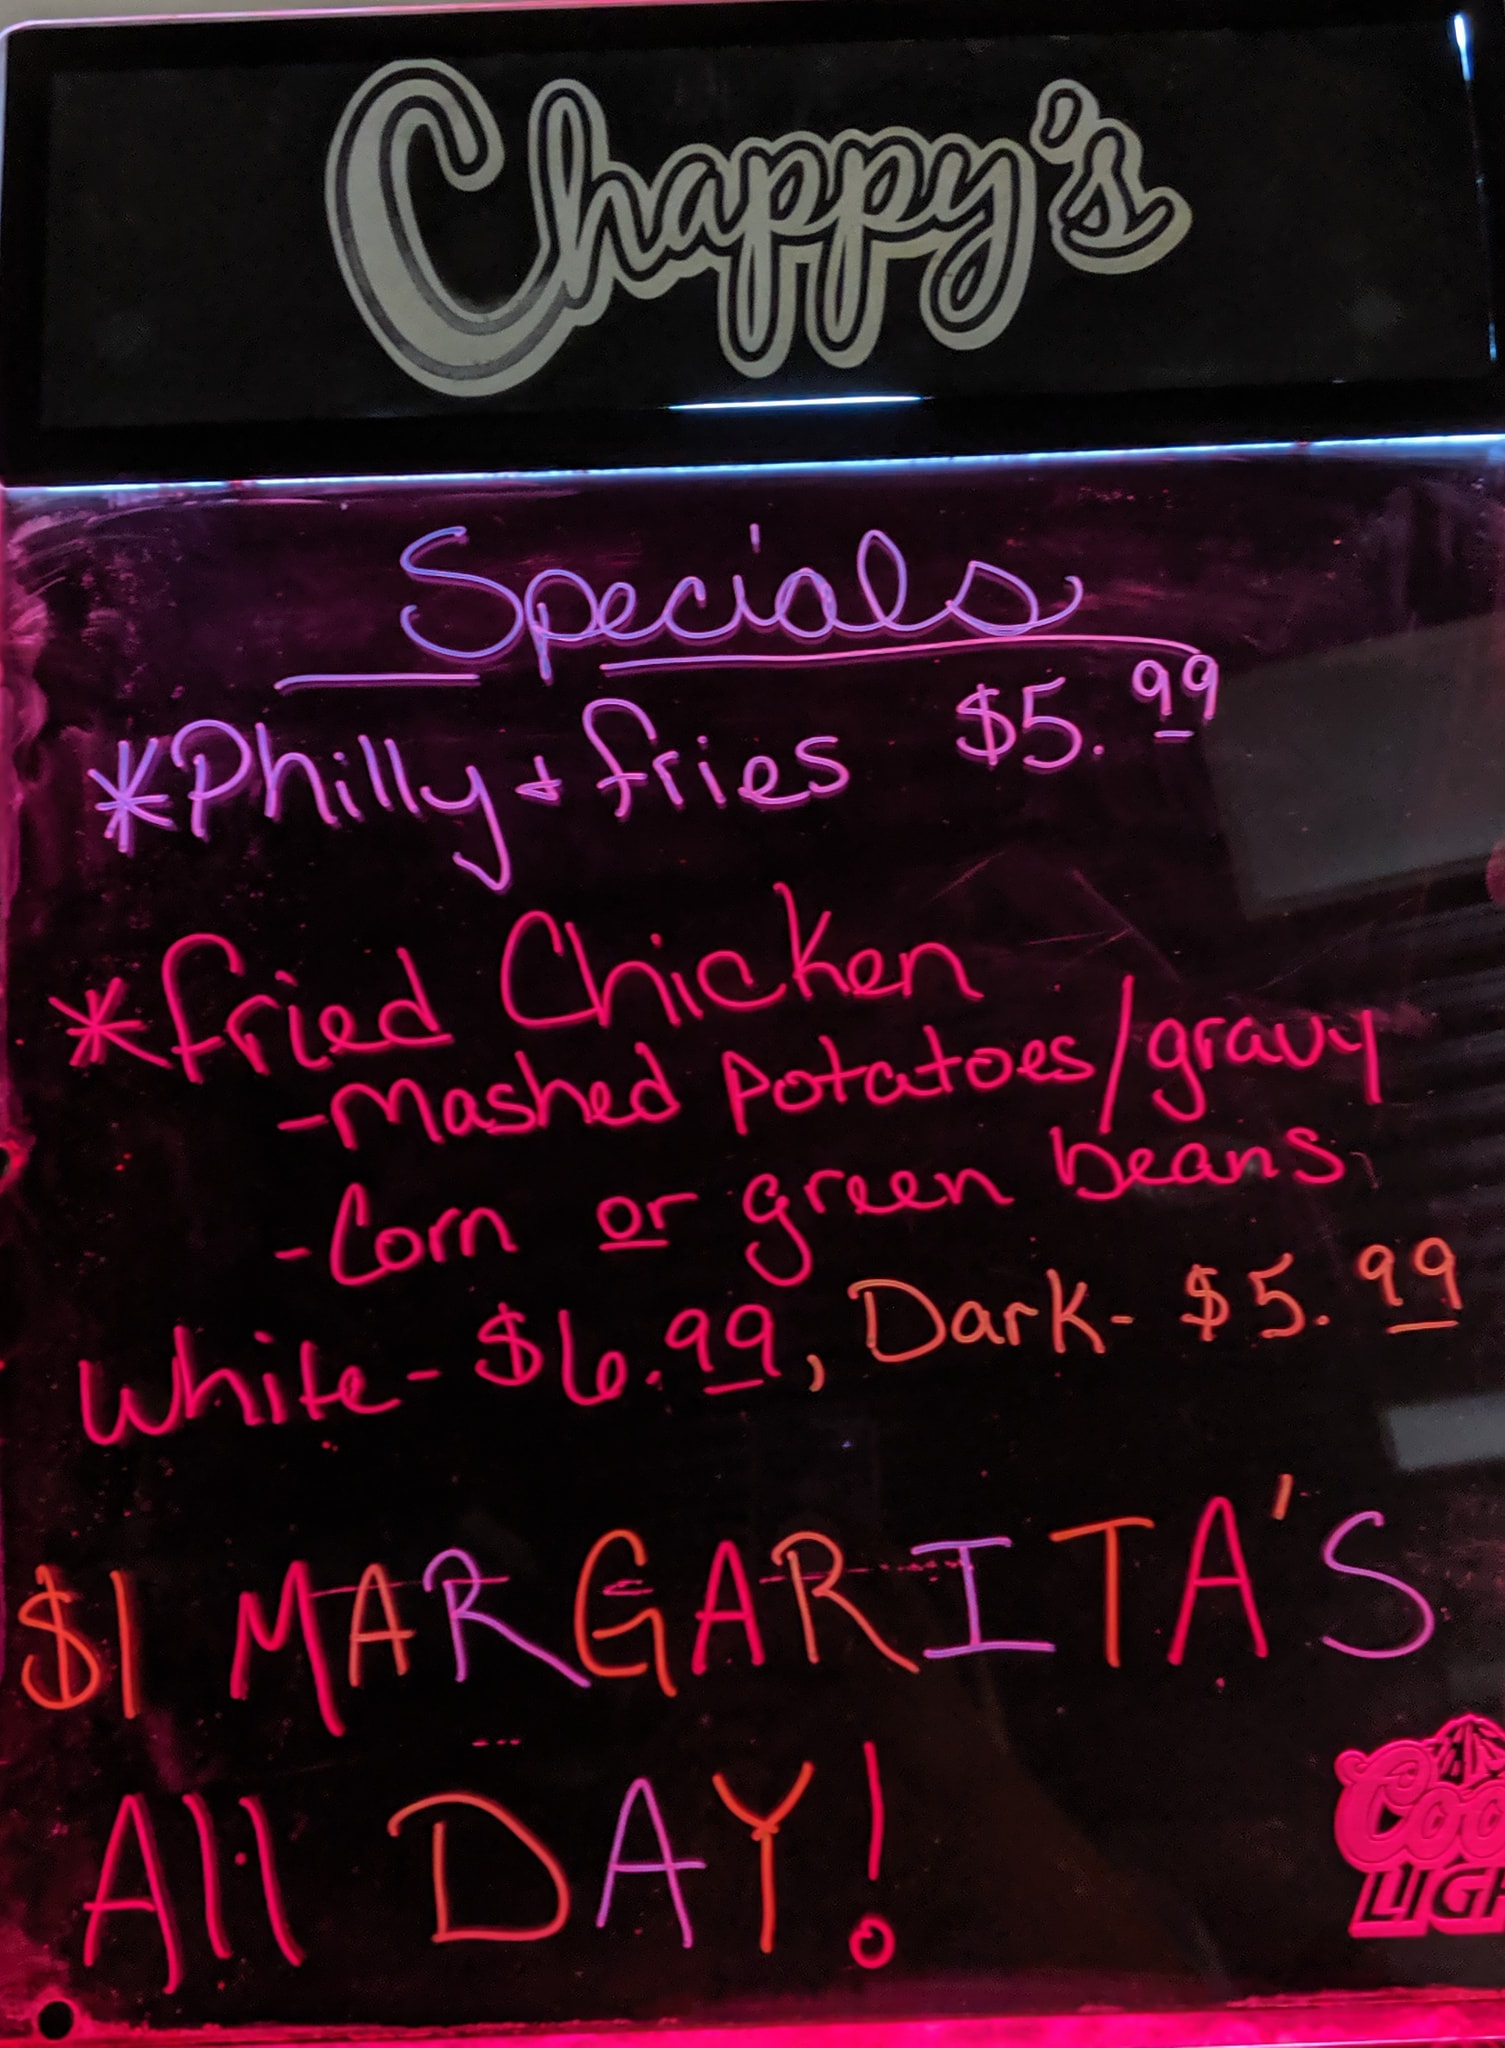 Chappy's
Specials
*Philly + fries $5.99
*fried Chicken
-Mashed potatoes/gravy
-Corn or green beans
White-$6.99, Dark-$5.99
$1 MARGARITA'S
All DAY!
Coo
LIGH